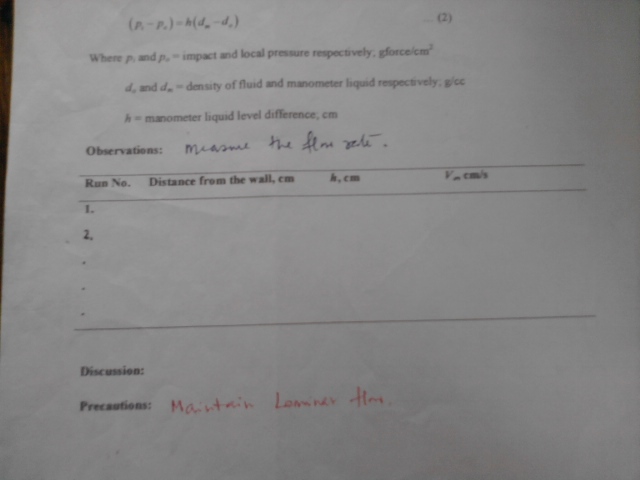 (pᵢ - pₒ) = h(dₘ - dₒ) ... (2)
Where pᵢ and pₒ = impact and local pressure respectively, gforce/cm²
dₒ and dₘ = density of fluid and manometer liquid respectively, g/cc
h = manometer liquid level difference, cm
Observations: measure the flow rate.
Run No. Distance from the wall, cm h, cm Vₘ cm/s
1.
2.
.
.
.
Discussion:
Precautions: Maintain Laminer flow.